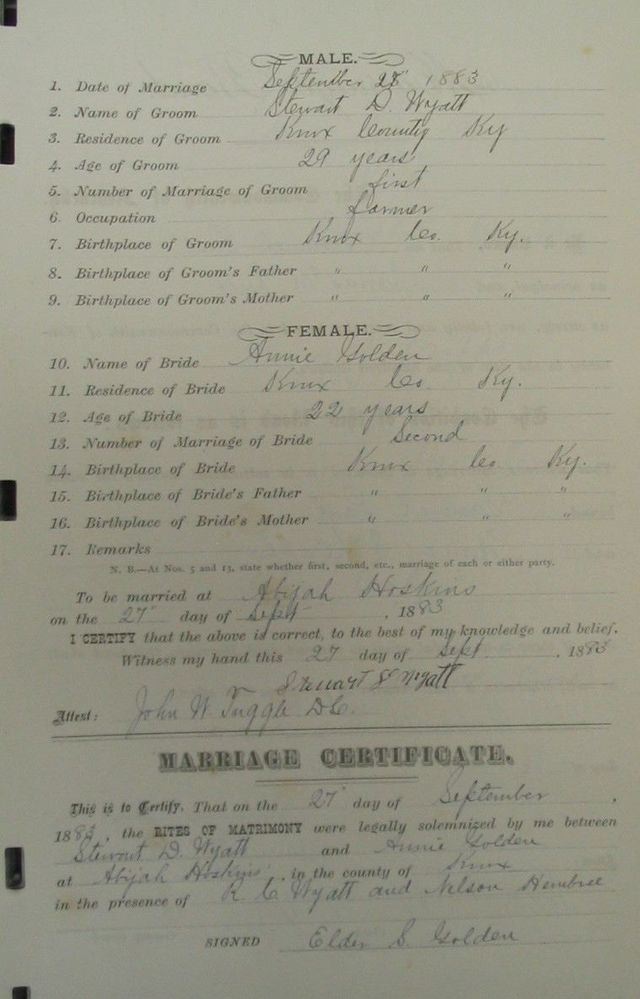 MALE.
1. Date of Marriage September 28" 1883
2. Name of Groom Stewart D. Wyatt
3. Residence of Groom Knox County Ky
4. Age of Groom 29 years
5. Number of Marriage of Groom first
6. Occupation farmer
7. Birthplace of Groom Knox Co. Ky.
8. Birthplace of Groom's Father " " "
9. Birthplace of Groom's Mother " " "
FEMALE.
10. Name of Bride Annie Golden
11. Residence of Bride Knox Co Ky.
12. Age of Bride 22 years
13. Number of Marriage of Bride Second
14. Birthplace of Bride Knox Co Ky.
15. Birthplace of Bride's Father " " "
16. Birthplace of Bride's Mother " " "
17. Remarks
N. B.—At Nos. 5 and 13, state whether first, second, etc., marriage of each or either party.
To be married at Abijah Hoskins
on the 27" day of Sept, 1883
I CERTIFY that the above is correct, to the best of my knowledge and belief.
Witness my hand this 27 day of Sept, 1883
Wyatt
Attest: John W. Tuggle D.C.
MARRIAGE CERTIFICATE.
This is to Certify, That on the 27" day of September,
1883, the RITES OF MATRIMONY were legally solemnized by me between
Stewart D. Wyatt and Annie Golden
at Abijah Hoskins', in the county of Knox
in the presence of R. C. Wyatt and Nelson Hembree
SIGNED Elder S. Golden